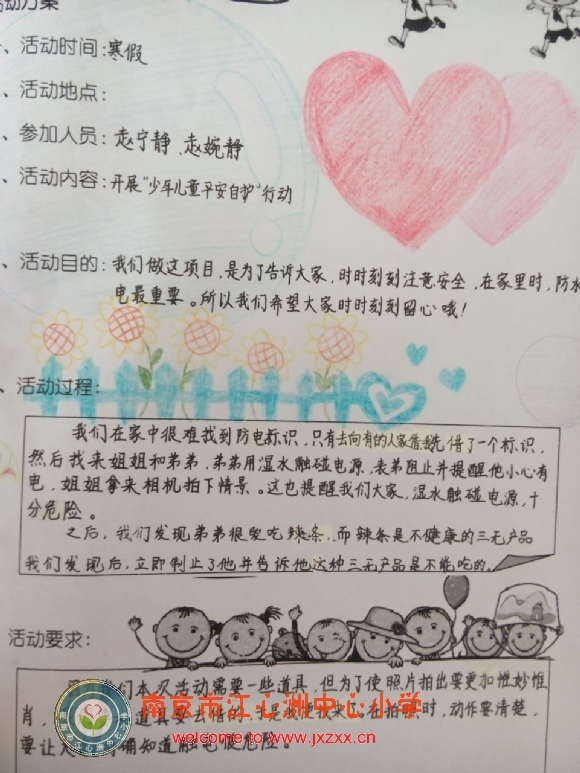 活动方案
、活动时间:寒假
、活动地点:
、参加人员:赵宁静、赵婉静
、活动内容:开展“少年儿童平安自护”行动
、活动目的:我们做这项目,是为了告诉大家,时时刻刻注意安全,在家里时,防水
电最重要。所以我们希望大家时时刻刻留心哦!
、活动过程:
我们在家中很难找到防电标识,只有去向有的人家借了一个标识,
然后找来姐姐和弟弟,弟弟用湿水触碰电源,表弟阻止并提醒他小心有
电,姐姐拿来相机拍下情景。这也提醒我们大家,湿水触碰电源,十
分危险。
之后,我们发现弟弟很爱吃辣条,而辣条是不健康的三无产品
我们发现后,立即制止了他并告诉他这种三无产品是不能吃的。
活动要求:
们本次活动需要一些道具,但为了使照片拍出要更加惟妙惟
肖,道具要去借的,在拍照时,动作要清楚,
要让大知道触电很危险。
南京市江心洲中心小学
welcome to www.jxzxx.cn